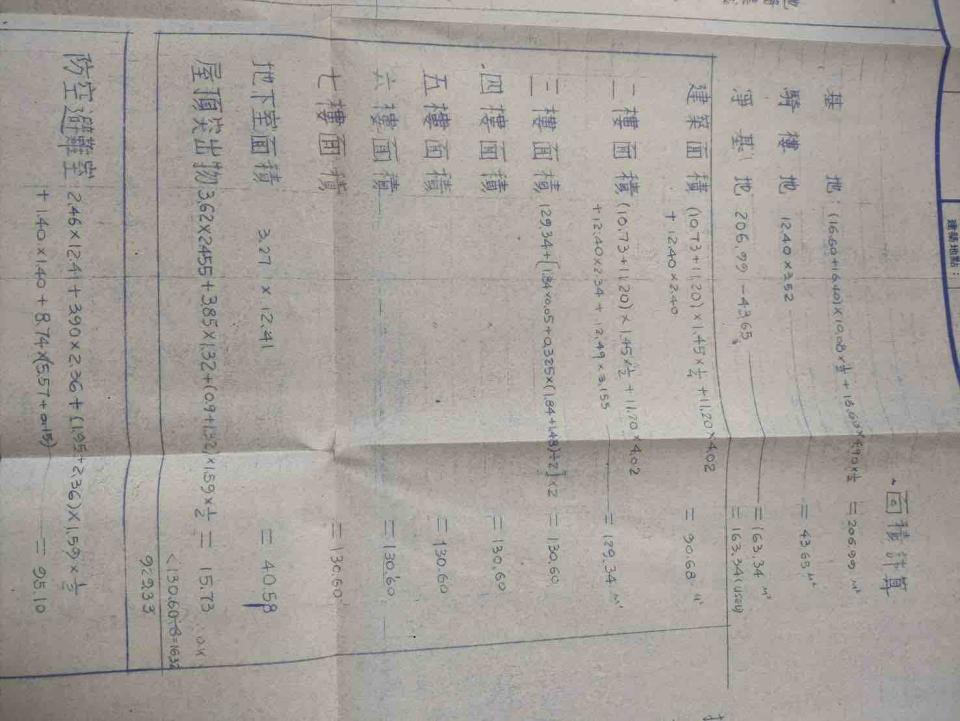 建築地點：
面積計算
基地：(16.60+16.40)×10.08×½+16.60×4.90×½ =206.99 M²
騎樓地 12.40×3.52 =43.65 M²
淨基地 206.99-43.65 =163.34 M²
=163.34(USED)
建築面積 (10.73+11.20)×1.45×½+11.20×4.02
+12.40×2.40 =90.68 M²
二樓面積 (10.73+11.20)×1.45×½+11.20×4.02
+12.40×2.34+12.49×3.155 =129.34 M²
三樓面積 129.34+[1.84×0.05+0.325×(1.84+1.48)÷2]×2 =130.60
四樓面積 =130.60
五樓面積 =130.60
六樓面積 =130.60
七樓面積 =130.60
地下室面積 3.27×12.41 =40.58
屋頂突出物 3.62×2.455+3.85×1.32+(0.9+1.32)×1.59×½=15.73 ∴O.K
<130.60÷8=16.32
929.33
防空避難室 2.46×12.41+3.90×2.36+(1.95+2.36)×1.59×½
+1.40×1.40+8.74×(5.57+0.15) =95.10